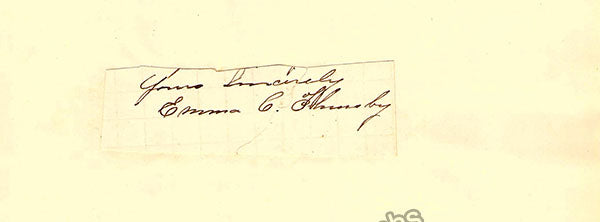 Yours Sincerely
Emma C. Thursby